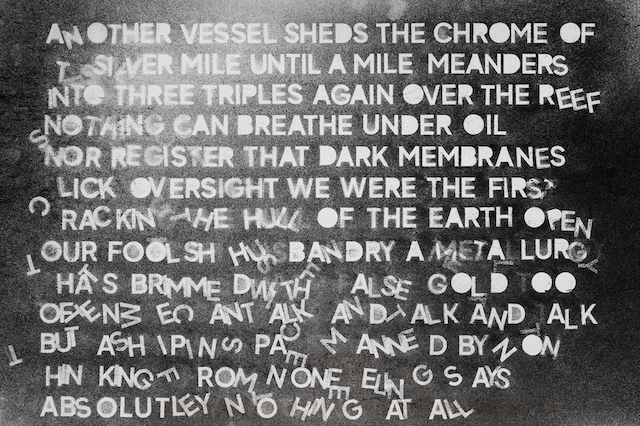 ANOTHER VESSEL SHEDS THE CHROME OF
SILVER MILE UNTIL A MILE MEANDERS
INTO THREE TRIPLES AGAIN OVER THE REEF
NOTHING CAN BREATHE UNDER OIL
NOR REGISTER THAT DARK MEMBRANES
SLICK OVERSIGHT WE WERE THE FIRST
CRACKIN THE HULL OF THE EARTH OPEN
OUR FOOLSH HUSBANDRY A METALLURGY
THATS BRIMMED WITH FALSE GOLD TOO
OFTEN WE CANT TALK AND TALK AND TALK
BUT A SHIP IN SPACE MANNED BY NON
THINKING FROM NONE FEELING SAYS
ABSOLUTLEY NOTHING AT ALL